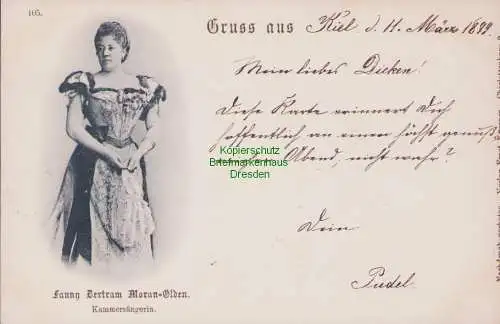 105.
Gruss aus Kiel d. 11. März 1899.
Mein liebes Dicken!
Diese Karte erinnert Dich
hoffentlich an einen höchst genuß-
Abend, nicht wahr?
Kopierschutz
Briefmarkenhaus
Dresden
Dein
Pudel.
Fanny Bertram Moran-Olden.
Kammersängerin.